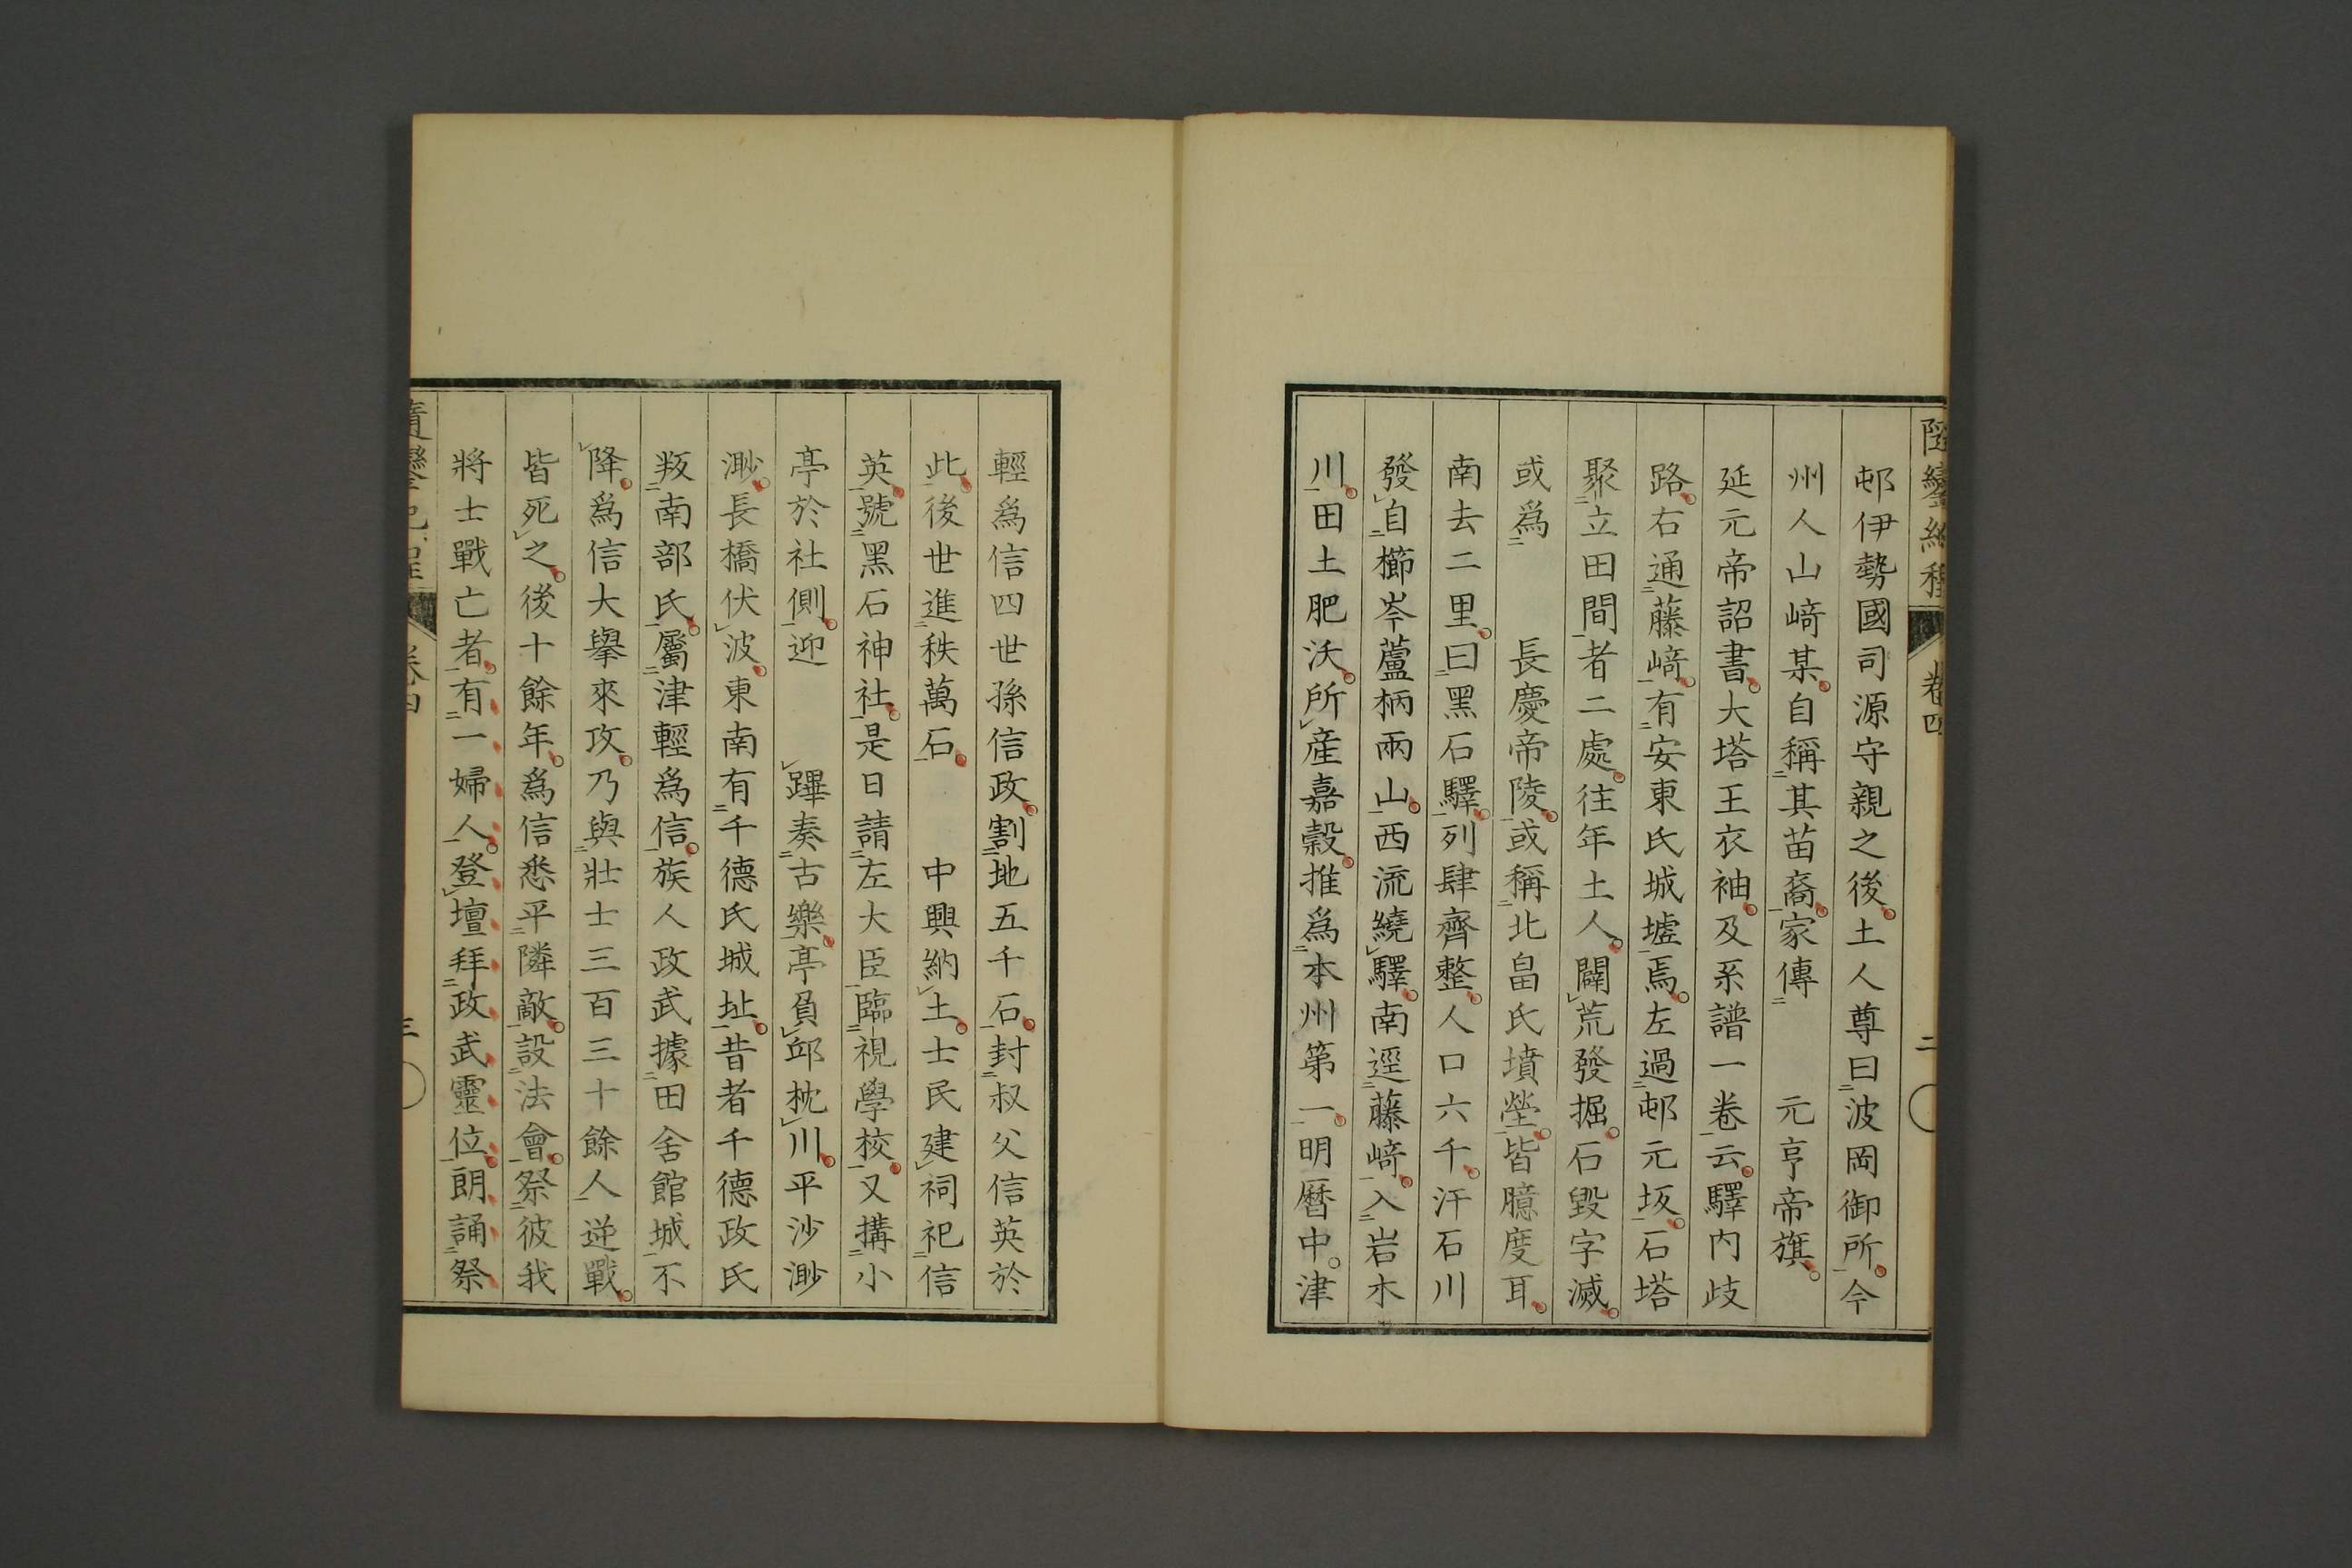 隨鑾紀程 卷四 二
邨伊勢國司源守親之後。土人尊曰波岡御所。今
州人山﨑某。自稱其苗裔。家傳 元亨帝旗。
延元帝詔書。大塔王衣袖。及系譜一卷云。驛內歧
路。右通藤﨑。有安東氏城墟焉。左過邨元坂。石塔
聚立田間者二處。往年土人。闢荒發掘。石毀字滅。
或爲 長慶帝陵。或稱北畠氏墳塋。皆臆度耳。
南去二里。曰黑石驛。列肆齊整。人口六千。汗石川
發自櫛岑蘆柄兩山。西流繞驛。南逕藤﨑。入岩木
川。田土肥沃。所產嘉穀。推爲本州第一。明曆中。津
輕爲信四世孫信政。割地五千石。封叔父信英於
此。後世進秩萬石。 中興納土。士民建祠祀信
英。號黑石神社。是日請左大臣臨視學校。又搆小
亭於社側。迎 蹕奏古樂。亭負邱枕川。平沙渺
渺。長橋伏波。東南有千德氏城址。昔者千德政氏
叛南部氏。屬津輕爲信。族人政武據田舍館城。不
降。爲信大擧來攻。乃與壯士三百三十餘人逆戰。
皆死之。後十餘年。爲信悉平隣敵。設法會。祭彼我
將士戰亡者。有一婦人。登壇拜政武靈位。朗誦祭
隨鑾紀程 卷四 三